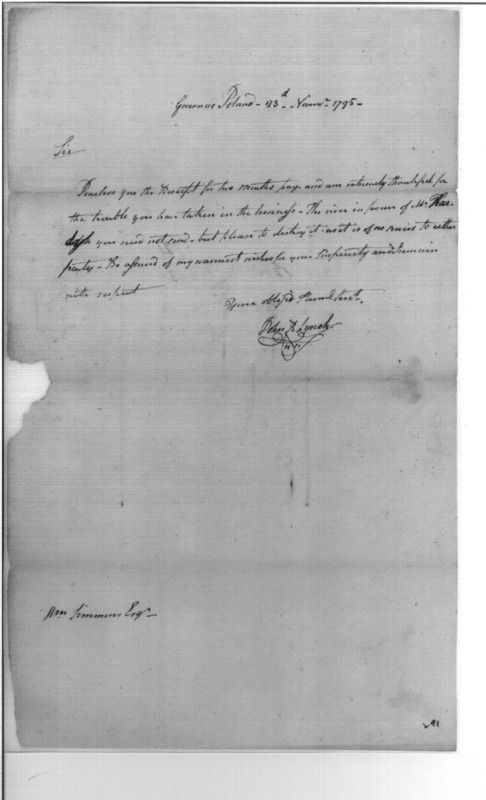 Governors Island - 23.d Novemr. 1795 -
Sir
I enclose you the Receipt for two months pay. and am extremely thankful for
the trouble you have taken in the business - The in favour of Mr.
you need not send - but please to destroy it - as it is of no service to either
party - Be assured of my warmest wishes for your Prosperity and I remain
with respect
Yours obliged Humble Servt.
Lynch
Wm Simmons Esqr -
91